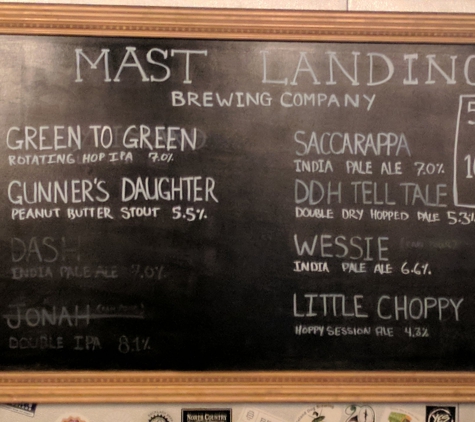 MAST LANDING
BREWING COMPANY
GREEN TO GREEN
ROTATING HOP IPA 7.0%
GUNNER'S DAUGHTER
PEANUT BUTTER STOUT 5.5%
DASH
INDIA PALE ALE 7.0%
JONAH
DOUBLE IPA 8.1%
SACCARAPPA
INDIA PALE ALE 7.0%
DDH TELL TALE
DOUBLE DRY HOPPED PALE 5.3%
WESSIE
INDIA PALE ALE 6.6%
LITTLE CHOPPY
HOPPY SESSION ALE 4.3%
NORTH COUNTRY